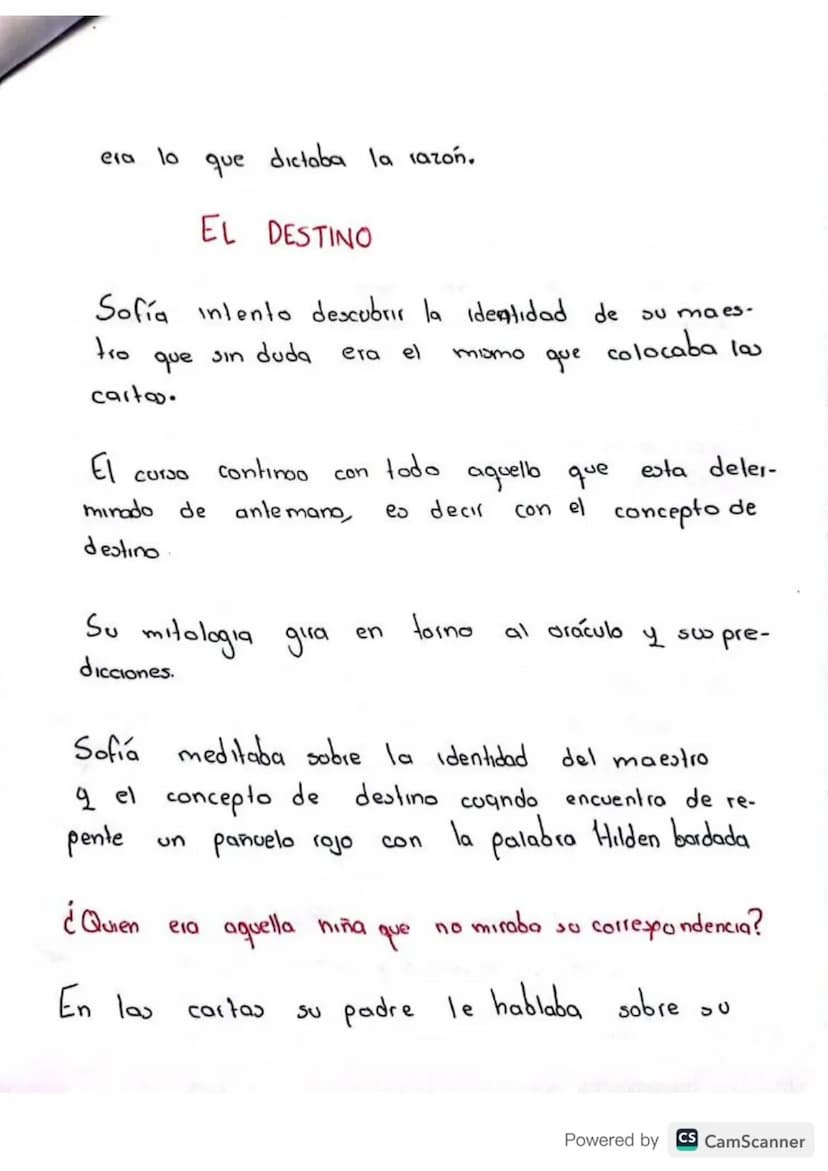 era lo que dictaba la razón.
EL DESTINO
Sofía intento descubrir la identidad de su maes-
tro que sin duda era el mismo que colocaba las
cartas.
El curso continuo con todo aquello que esta deter-
minado de antemano, es decir con el concepto de
destino.
Su mitologia gira en torno al oráculo y sus pre-
dicciones.
Sofía meditaba sobre la identidad del maestro
y el concepto de destino cuando encuentra de re-
pente un pañuelo rojo con la palabra Hilden bordada
¿Quien era aquella niña que no miraba su correspondencia?
En las cartas su padre le hablaba sobre su
Powered by CS CamScanner